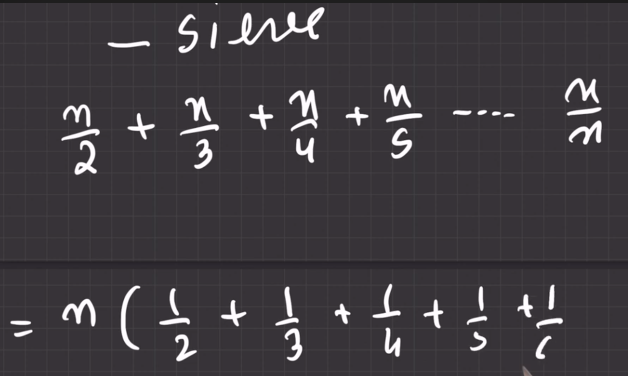 — sieve
n/2 + n/3 + n/4 + n/5 ---- n/n
= n ( 1/2 + 1/3 + 1/4 + 1/5 + 1/6